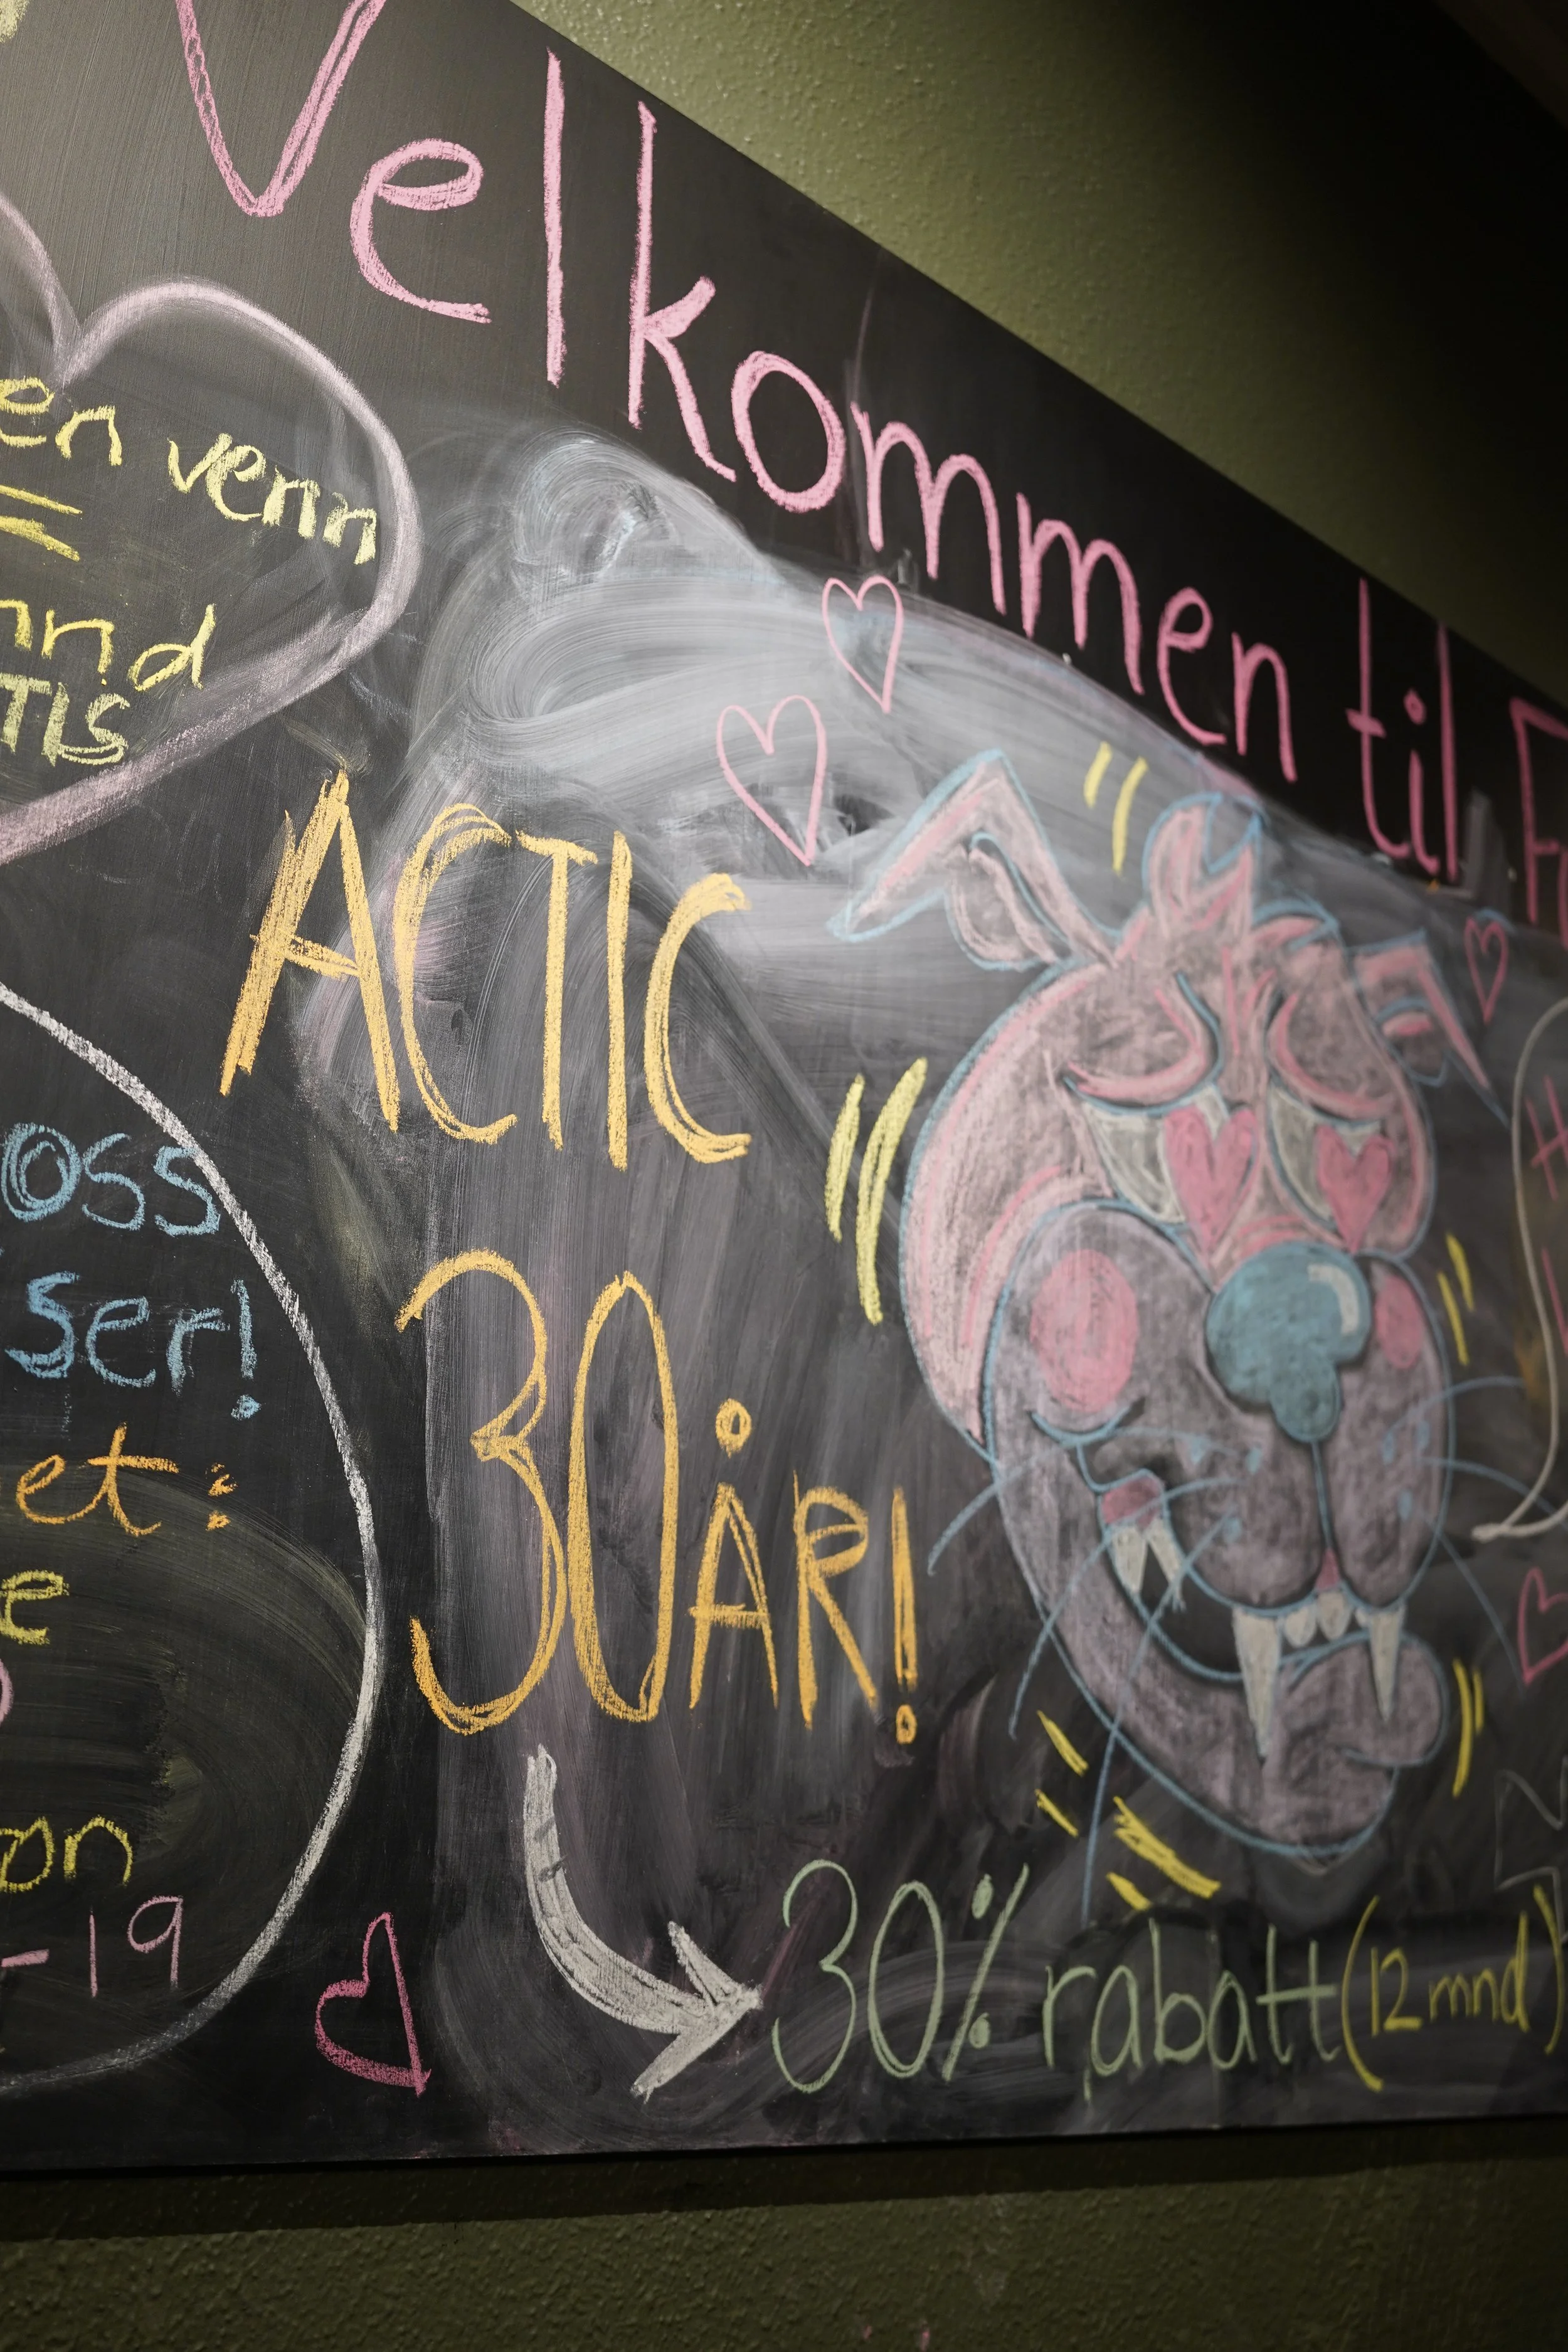 Velkommen til
en venn
=
mnd
TIS
ACTIC
30 ÅR!
oss
ser!
et:
e
on
-19
30% rabatt (12 mnd)